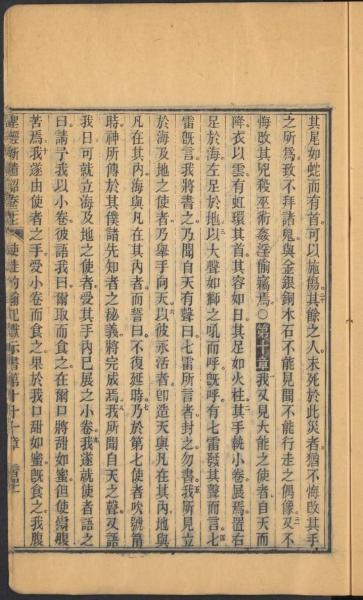 其尾如蛇而有首可以施傷其餘之人未死於此災者猶不悔改其手
之所為致不拜諸鬼與金銀銅木石不能見聞不能行走之偶像又不
悔改其兇殺巫術姦淫偷竊焉○第十章我又見大能之使者自天而
降衣以雲有虹環其首其容如日其足如火柱其手執小卷展焉置右
足於海左足於地以大聲如獅之吼而呼既呼有七雷發其聲而言七
雷既言我將書之乃聞自天有聲曰七雷所言者封之勿書我所見立
於海及地之使者乃舉手向天以彼永活者卽造天與凡在其內地與
凡在其內海與凡在其內者而誓曰不復延時乃於第七使者吹號筩
時神所傳於其僕諸先知者之秘義將完成焉我所聞自天之聲又語
我曰可就立海及地之使者受其手內已展之小卷我遂就使者語之
曰請予我以小卷彼語我曰爾取而食之在爾口將甜如蜜但使爾腹
苦焉我遂由使者之手受小卷而食之果於我口甜如蜜旣食之我腹
聖經新遺詔
使徒約翰
默示書第十
十一章